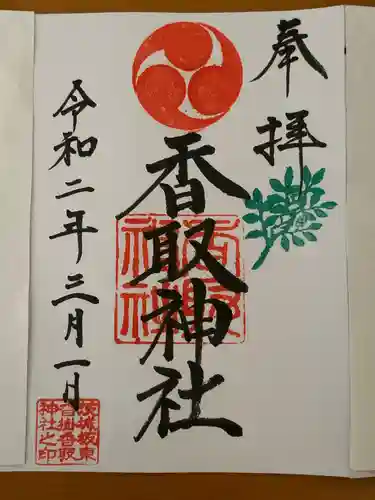 奉拝
香取神社
香取
神社
令和二年三月一日
茨城坂東
沓掛香取
神社之印